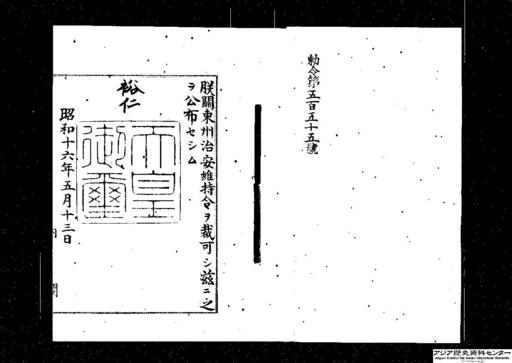 勅令第五百五十五號
朕關東州治安維持令ヲ裁可シ茲ニ之
ヲ公布セシム
裕仁
天皇
御璽
昭和十六年五月十三日
内閣
アジア歴史資料センター
Japan Center for Asian Historical Records